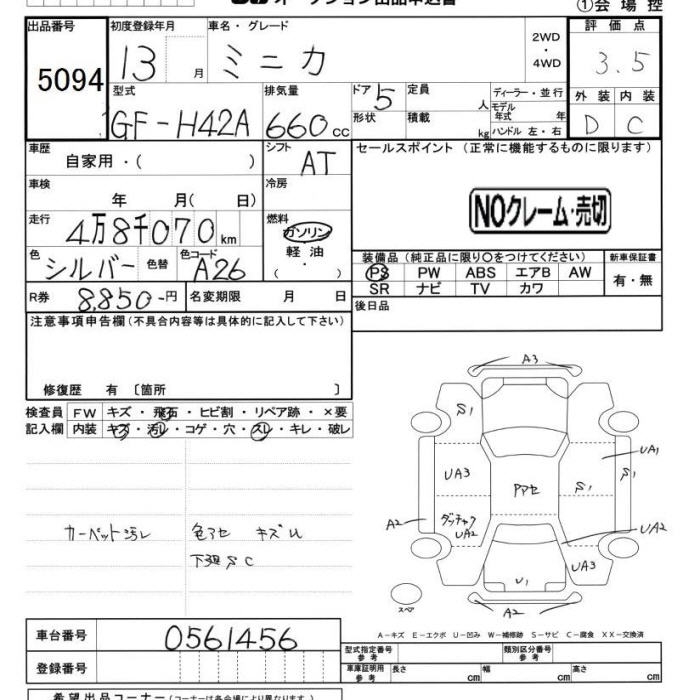 オークション出品申込書
①会場控
出品番号 初度登録年月 車名・グレード 評価点
5094 13 月 ミニカ 2WD ・ 4WD 3.5
型式 排気量 ドア 5 定員 人 ディーラー・並行 外装 内装
GF-H42A 660 cc 形状 積載 kg モデル年式 年 D C
ハンドル 左・右
車歴 自家用・( ) シフト AT セールスポイント (正常に機能するものに限ります)
車検 年 月( 日) 冷房
NOクレーム・売切
走行 4万8千070km 燃料 ガソリン
軽油・( )
色 シルバー 色替 色コード A26 装備品 (純正品に限り○をつけてください) 新車保証書
PS PW ABS エアB AW 有・無
SR ナビ TV カワ
R券 8,850-円 名変期限 月 日 後日品
注意事項申告欄(不具合内容等は具体的に記入して下さい)
修復歴 有 〔箇所 〕
検査員 FW キズ・飛石・ヒビ割・リペア跡・×要
記入欄 内装 キズ・汚レ・コゲ・穴・スレ・キレ・破レ
カーペット汚レ 色アセ キズU
下廻SC
A3
S1
UA1
UA3 アアセ S1 S1
A2 ダッチャク UA2 UA2
UA3
U1
スペア A2
A-キズ E-エクボ U-凹み W-補修跡 S-サビ C-腐食 XX-交換済
車台番号 0561456
型式指定番号 参考 類別区分番号 参考
登録番号 車庫証明用 参考 長さ cm 幅 cm 高さ cm
希望出品コーナー(コーナーは各会場により異なります。)